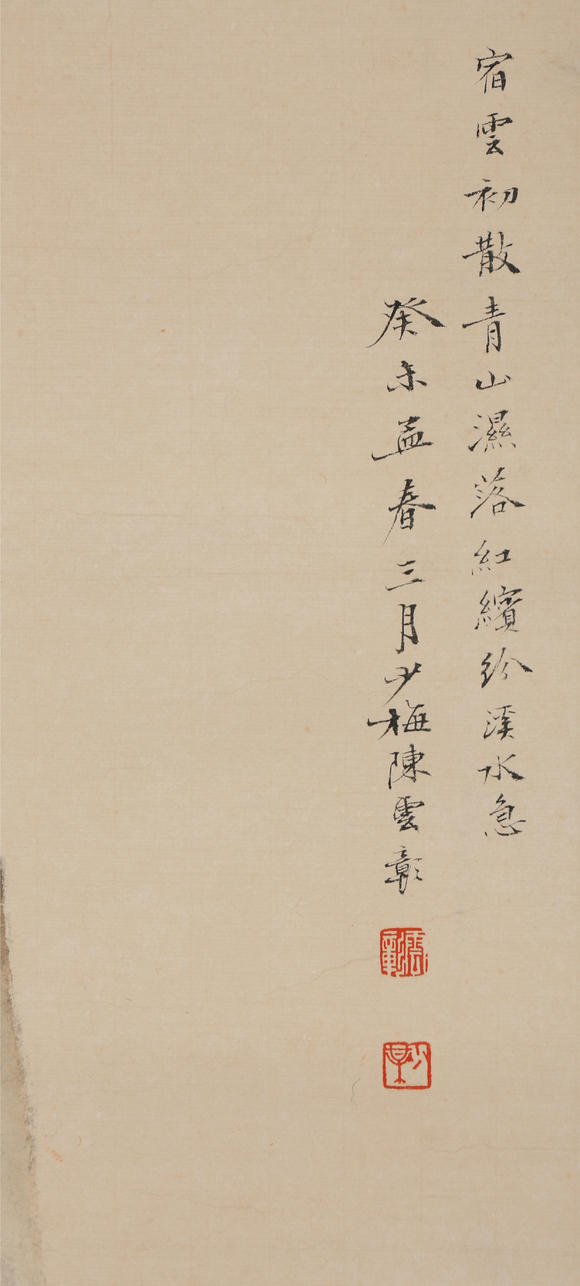 宿雲初散青山濕落紅繽紛溪水急
癸未孟春三月少梅陳雲彰
雲彰
少某